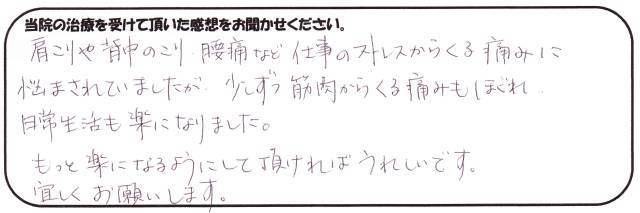 当院の治療を受けて頂いた感想をお聞かせください。
肩こりや背中のこり、腰痛など仕事のストレスからくる痛みに
悩まされていましたが、少しずつ筋肉からくる痛みもほぐれ、
日常生活も楽になりました。
もっと楽になるようにして頂ければうれしいです。
宜しくお願いします。